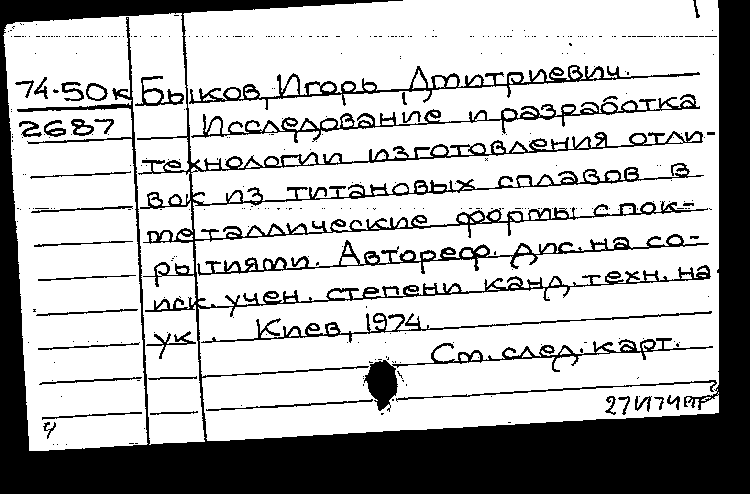 74-50к Быков, Игорь Дмитриевич.
2687 Исследование и разработка
технологии изготовления отли-
вок из титановых сплавов в
металлические формы с пок-
рытиями. Автореф. дис. на со-
иск. учен. степени канд. техн. на
ук. Киев, 1974.
См. след. карт.